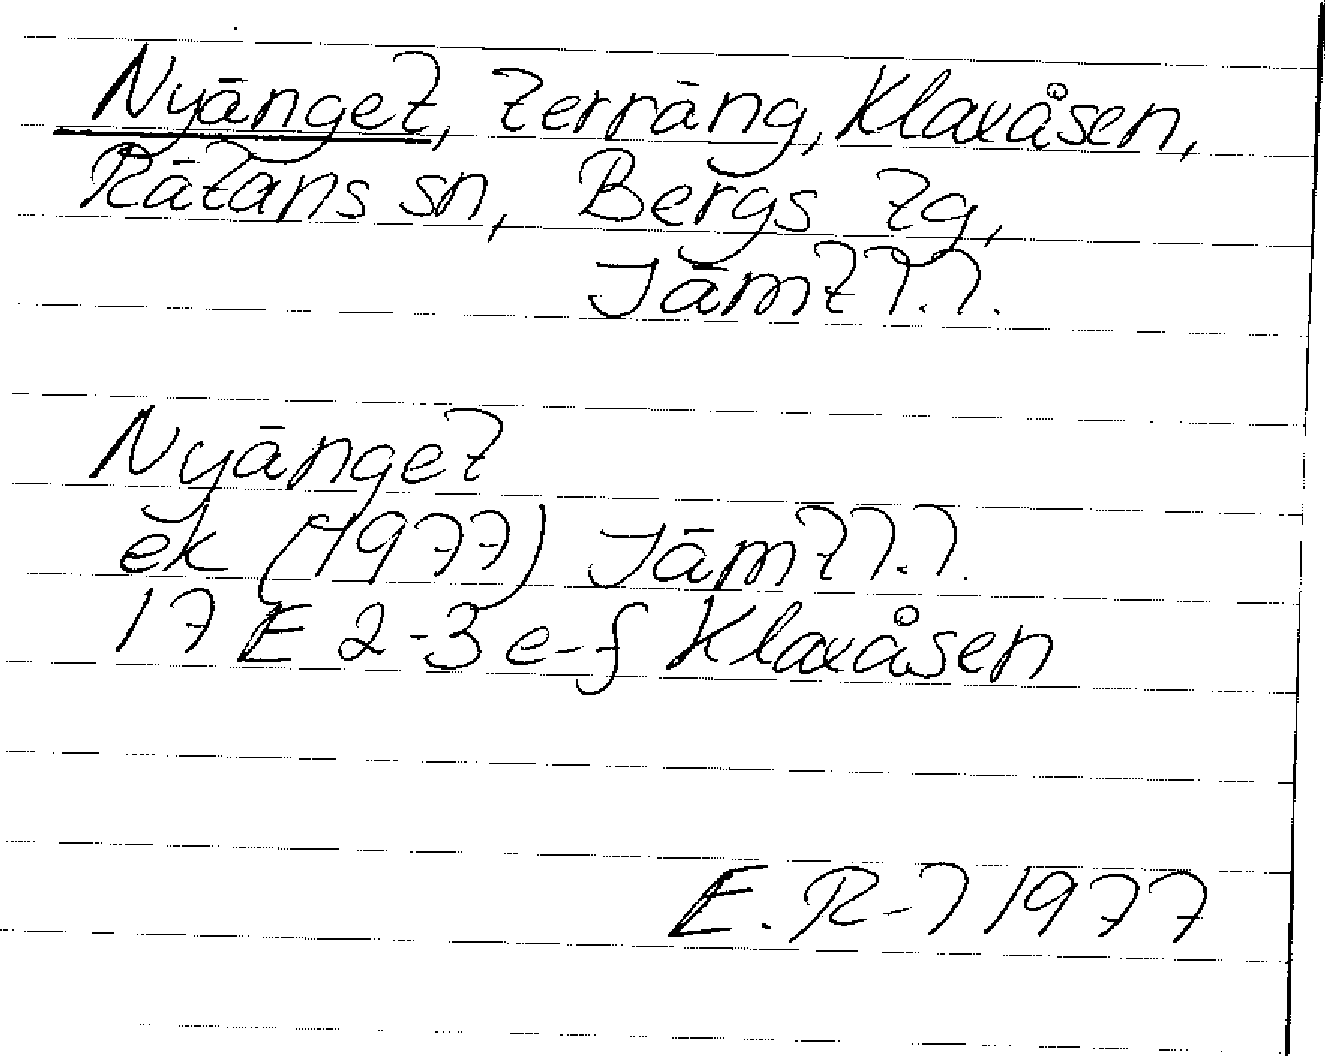 Nyänget, terräng, Klaxåsen,
Rätans sn, Bergs tg,
Jämtl.l.
Nyänget
ek (1977) Jämtl.l.
17 E 2-3 e-f Klaxåsen
E. R-l 1977